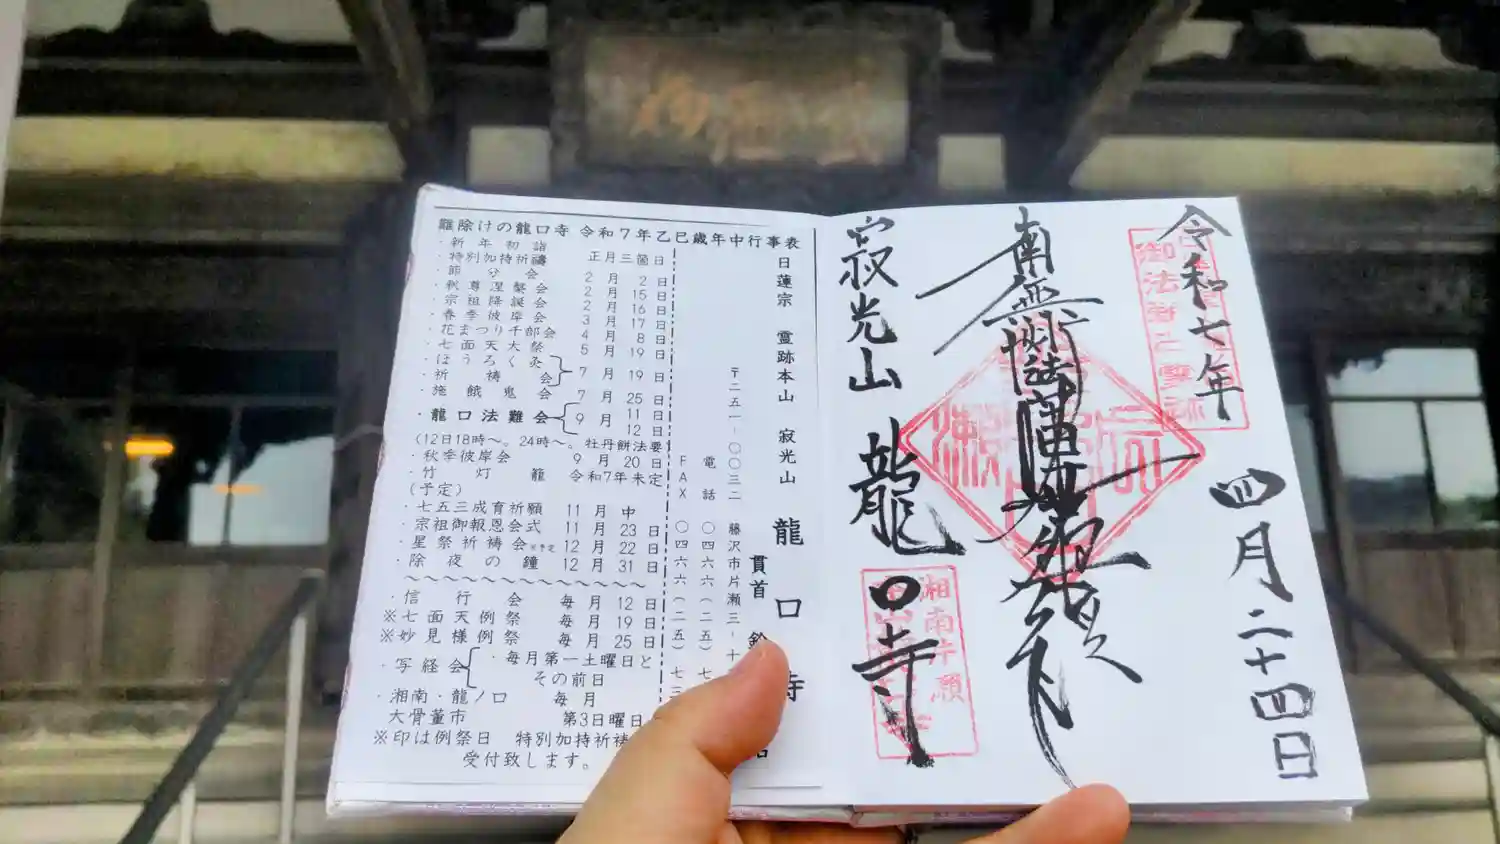 難除けの龍口寺 令和7年乙巳歳年中行事表
・新年初詣 正月三箇日
・特別加持祈禱
・節分会 2月2日
・釈尊涅槃会 2月15日
・宗祖降誕会 2月16日
・春季彼岸会 3月17日
・花まつり千部会 4月8日
・七面天大祭 5月19日
・ほうろく灸
・祈祷会 7月19日
・施餓鬼会 7月25日
・龍口法難会 9月11日 12日
(12日18時〜。24時〜。牡丹餅法要
・秋季彼岸会 9月20日
・竹灯籠 令和7年未定
(予定)
・七五三成育祈願 11月中
・宗祖御報恩会式 11月23日
・星祭祈祷会※予定 12月22日
・除夜の鐘 12月31日
〜〜〜〜〜〜〜〜〜〜〜〜〜〜
・信行会 毎月12日
※七面天例祭 毎月19日
※妙見様例祭 毎月25日
・写経会 ・毎月第一土曜日と
その前日
・湘南・龍ノ口 毎月
大骨董市 第3日曜日
※印は例祭日 特別加持祈祷
受付致します。
日蓮宗 霊跡本山 寂光山 龍口寺
貫首 鈴
〒二五一-〇〇三二 藤沢市片瀬三-十
電話 〇四六六(二五)七
FAX 〇四六六(二五)七三
令和七年
四月二十四日
南無妙法蓮華経
寂光山 龍口寺
湘南片瀬